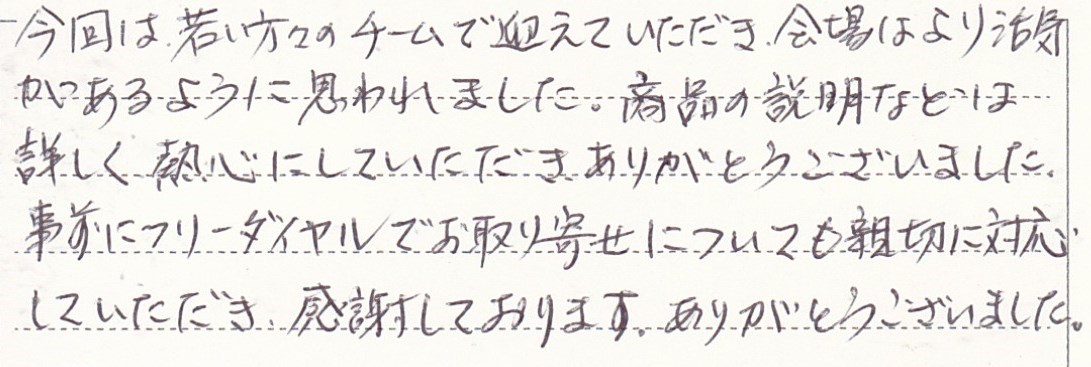 今回は、若い方々のチームで迎えていただき、会場はより活気
があるように思われました。商品の説明などは
詳しく熱心にしていただきありがとうございました。
事前にフリーダイヤルでお取り寄せについても親切に対応
していただき、感謝しております。ありがとうございました。